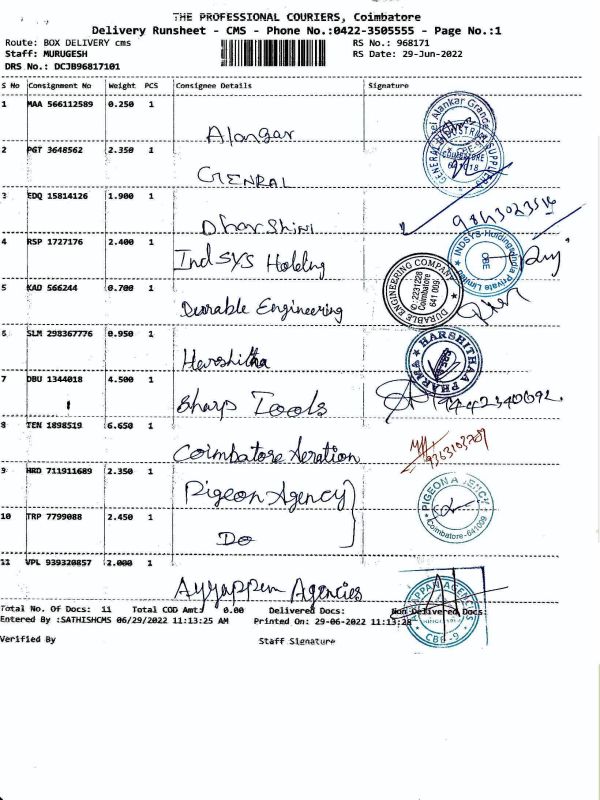 THE PROFESSIONAL COURIERS, Coimbatore
Delivery Runsheet - CMS - Phone No.:0422-3505555 - Page No.:1
Route: BOX DELIVERY cms RS No.: 968171
Staff: MURUGESH RS Date: 29-Jun-2022
DRS No.: DCJB96817101
S No Consignment No Weight PCS Consignee Details Signature
1 MAA 566112589 0.250 1
Alangar
2 PGT 3648562 2.350 1
GENRAL
3 EDQ 15814126 1.900 1
Dharshini
4 RSP 1727176 2.400 1
IndSYS Holding
INDSYS Holdings India Private Limited CBE
5 KAD 566244 0.700 1
Durable Engineering
DURABLE ENGINEERING COMPANY Coimbatore 641 009
6 SLM 298367776 0.950 1
Harshitha
HARSHITHAA PHARMA
7 DBU 1344018 4.500 1
Sharp Tools
8 TEN 1898519 6.650 1
Coimbatore Aeration
9 HRD 711911689 2.350 1
Pigeon Agency
PIGEON AGENCY Coimbatore-641009
10 TRP 7799088 2.450 1
Do
11 VPL 939320857 2.000 1
Ayyappen Agencies
AYYAPPAN AGENCIES CBE-9
Total No. Of Docs: 11 Total COD Amt: 0.00 Delivered Docs: Non-Delivered Docs:
Entered By :SATHISHCMS 06/29/2022 11:13:25 AM Printed On: 29-06-2022 11:13:28
Verified By Staff Signature